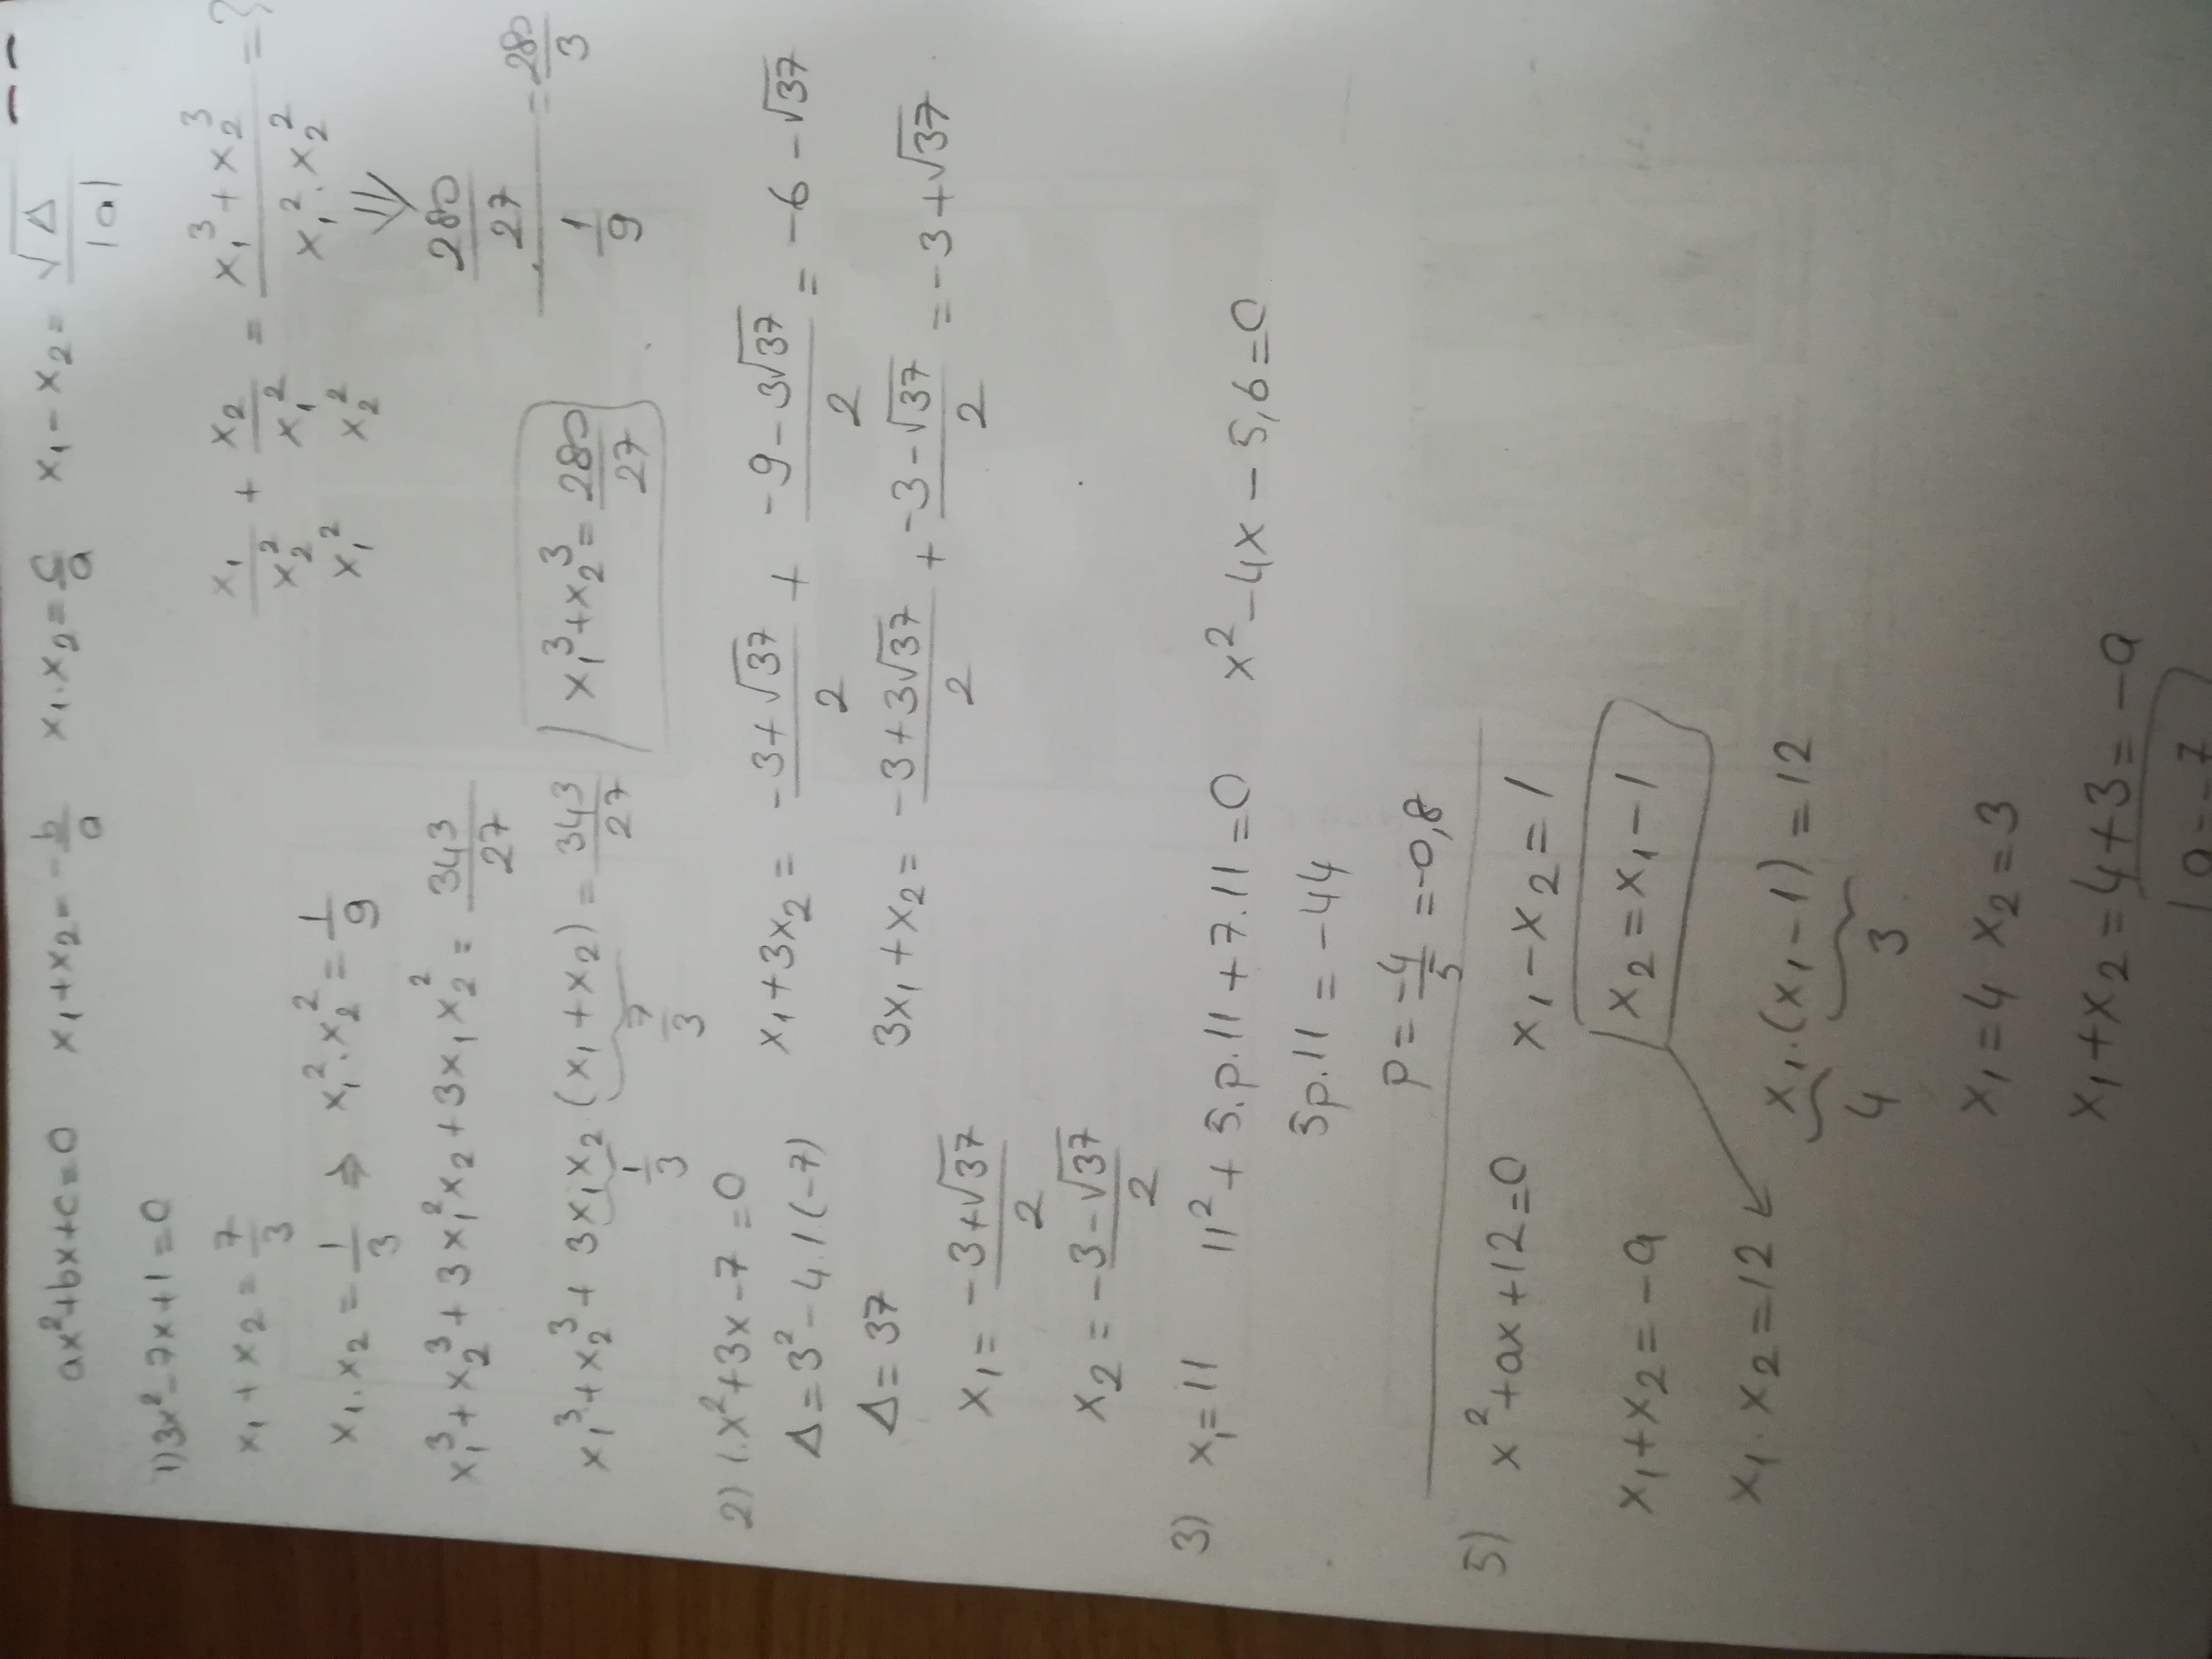 ax²+bx+c=0 x₁+x₂=-b/a x₁.x₂=c/a x₁-x₂=√Δ/|a|
1)3x²-7x+1=0
x₁+x₂=7/3
x₁.x₂=1/3 ⇒ x₁².x₂²=1/9
x₁³+x₂³+3x₁²x₂+3x₁x₂²=343/27
x₁³+x₂³+3x₁x₂.(x₁+x₂)=343/27
1/3 7/3
x₁³+x₂³=280/27
x₁/x₂²+x₂/x₁²=(x₁³+x₂³)/(x₁².x₂²)=?
x₁² x₂²
⇓
(280/27)/(1/9)=280/3
2) 1.x²+3x-7=0
Δ=3²-4.1.(-7)
Δ=37
x₁=(-3+√37)/2
x₂=(-3-√37)/2
x₁+3x₂=(-3+√37)/2+(-9-3√37)/2=-6-√37
3x₁+x₂=(-3+3√37)/2+(-3-√37)/2=-3+√37
3) x₁=11 11²+5.p.11+7.11=0 x²-4x-5,6=0
5p.11=-44
p=-4/5=-0,8
5) x²+ax+12=0 x₁-x₂=1
x₁+x₂=-a x₂=x₁-1
x₁.x₂=12 x₁.(x₁-1)=12
4 3
x₁=4 x₂=3
x₁+x₂=4+3=-a
a=-7